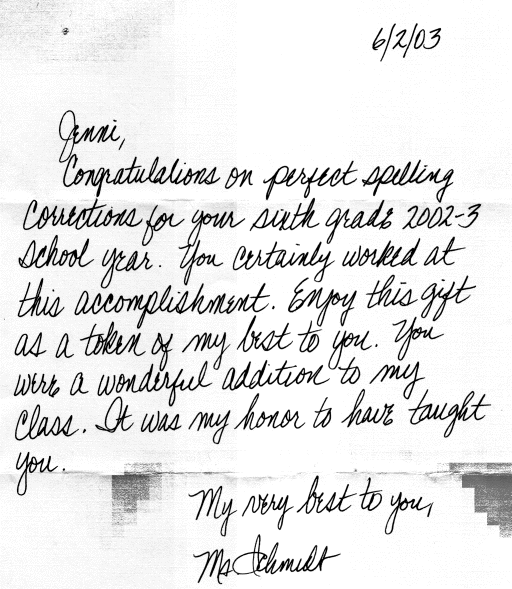 6/2/03
Jenni,
Congratulations on perfect spelling
corrections for your sixth grade 2002-3
school year. You certainly worked at
this accomplishment. Enjoy this gift
as a token of my best to you. You
were a wonderful addition to my
class. It was my honor to have taught
you.
My very best to you,
Ms Schmidt